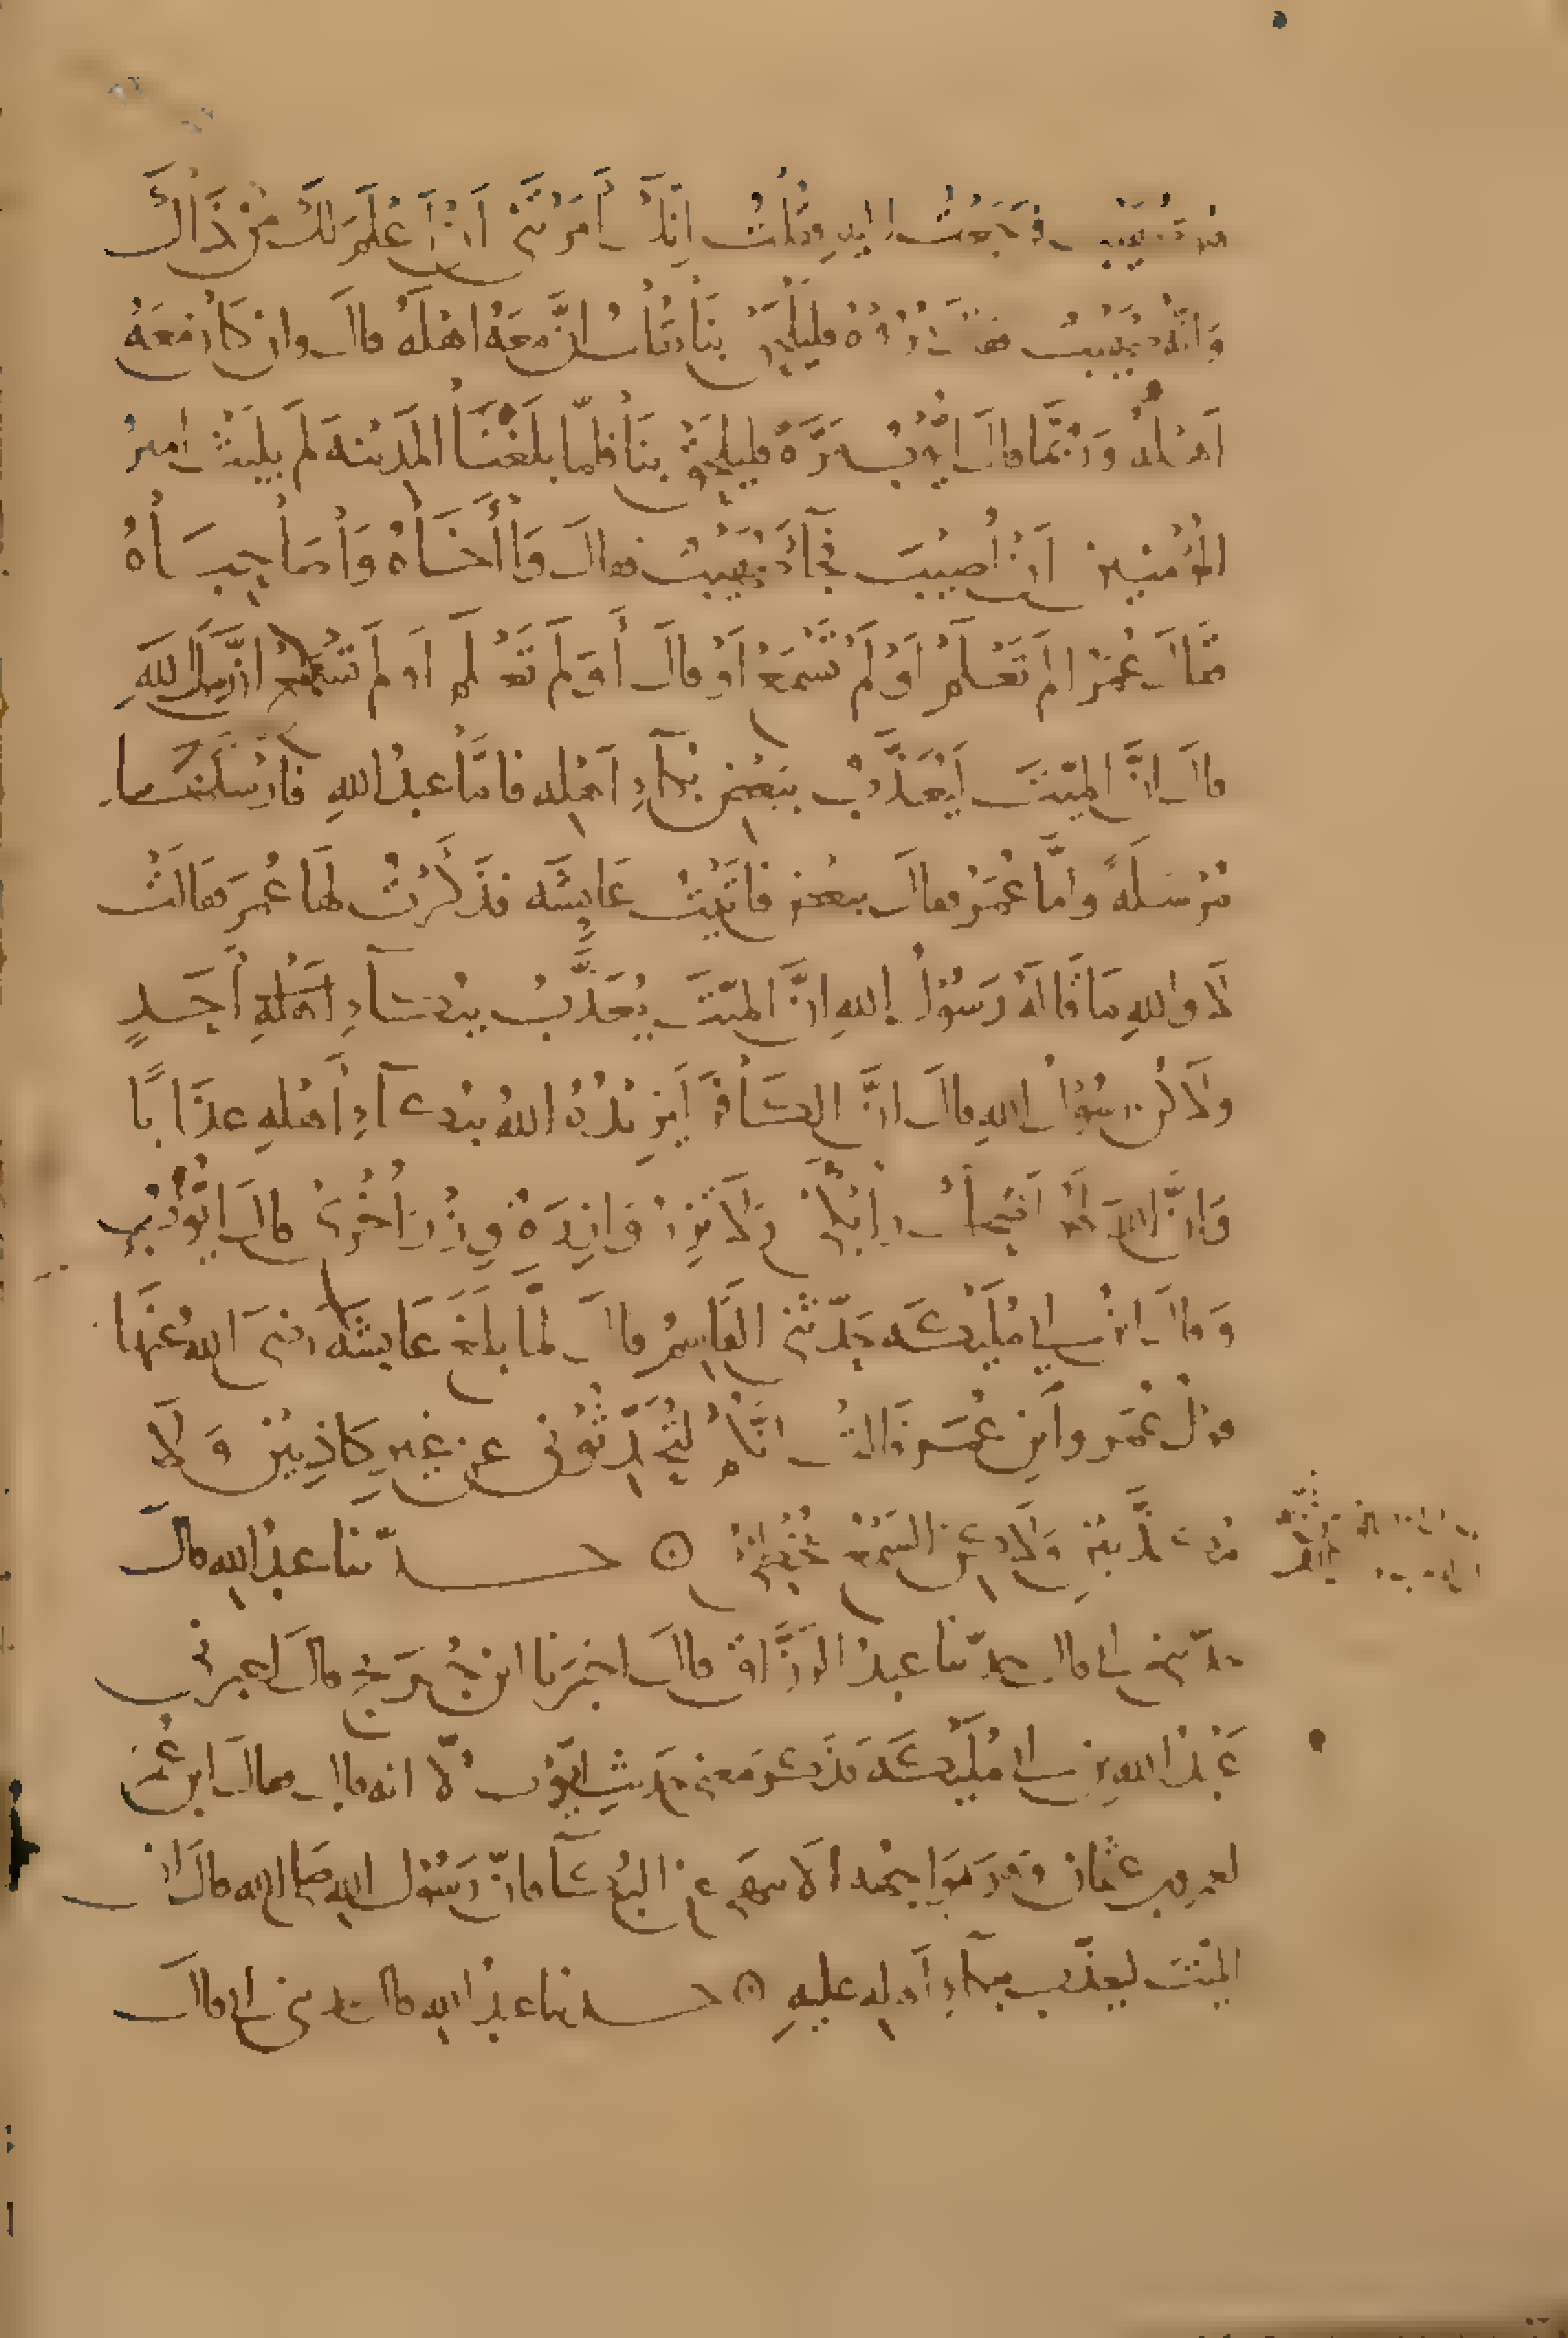 هو صهيب فرجعت اليه فقلت انك امرتني ان اعلم لك من ذاك
وانه صهيب فقال مروه فليلحق بنا فقلت ان معه اهله قال وان كان معه
اهله وربما قال ايوب مره فليلحق بنا فلما بلغنا المدينه لم يلبث امير
المؤمنين ان اصيب فجآء صهيب فقال وا اخاه وا صاحباه
فقال عمر الم تعلم او لم تسمع او قال أو لم تعلم او لم تسمع ان رسول الله
قال ان الميت ليعذب ببعض بكآء اهله فاما عبد الله فارسلها
مرسلة واما عمر فقال ببعض فاتيت عايشه فذكرت لها قول عمر فقالت
لا والله ما قاله رسول الله ان الميت يعذب ببكآء اهله احد
ولاكن رسول الله قال ان الكافر ليزيده الله ببكآء اهله عذابا
وان الله لهو اضحك وابكى ولا تزر وازرة وزر اخرى قال ايوب
وقال ابن ابي مليكه حدثني القاسم قال لما بلغ عايشه رضى الله عنها
قول عمر وابن عمر قالت انكم لتحدثوني عن غير كاذبين ولا
مكذبين ولاكن السمع يخطئ ⊙ حدثنا عبد الله قال
حدثني ابي قال حدثنا عبد الرزاق قال اخبرنا ابن جريج قال اخبرني
عبد الله بن ابي مليكه فذكر معنى حديث ايوب الا انه قال فقال ابن عمر
لعمرو بن عثمان وهو مواجهه الا تنهى عن البكآ فان رسول الله صلى الله قال ان
الميت ليعذب ببكآء اهله عليه ⊙ حدثنا عبد الله قال حدثني ابي قال